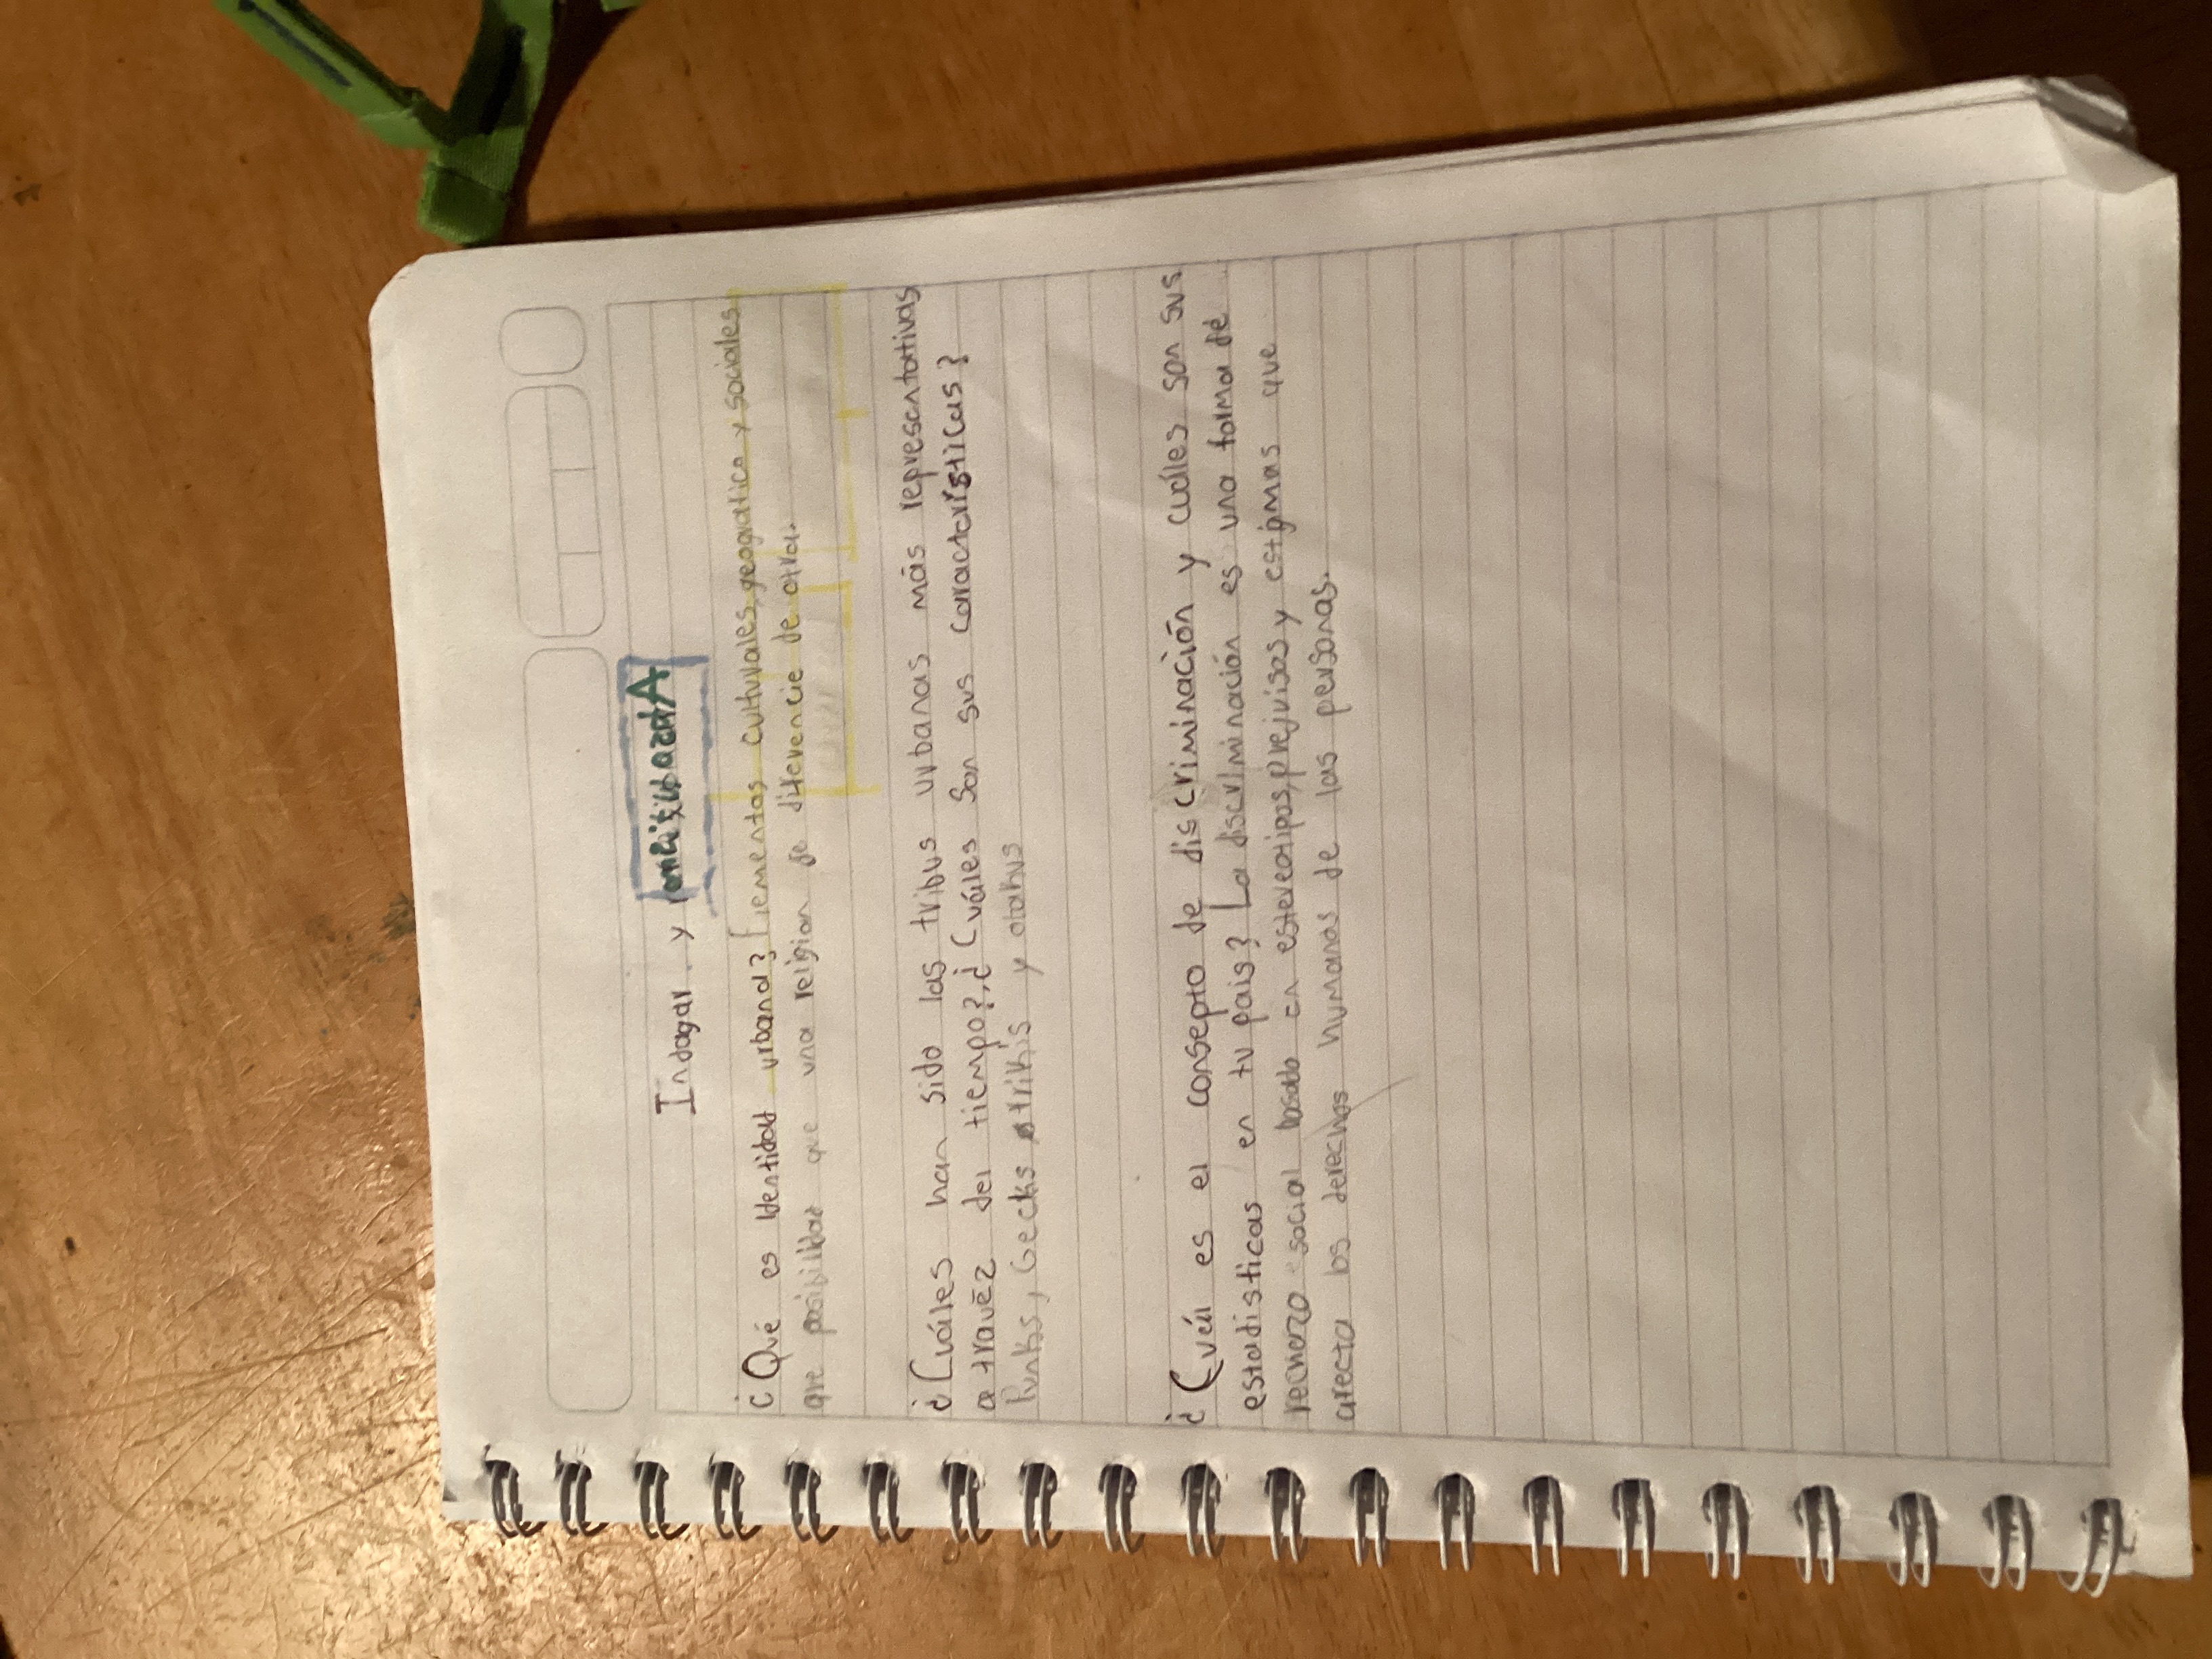 Indagar y
¿Qué es identidad urbana? Elementos culturales, geografico y sociales
que posibilitar que una religion se diferencie de otra.
¿Cuáles han sido las tribus urbanas más representativas
a travéz del tiempo?, ¿Cuáles son sus características?
Punks, Gecks y otakus
¿Cuál es el consepto de discriminación y cuáles son sus
estadisticas en tu pais? La discriminación es una forma de
rechazo social basado en estereotipos, prejuisos y estigmas que
afecta los derechos humanos de las personas.